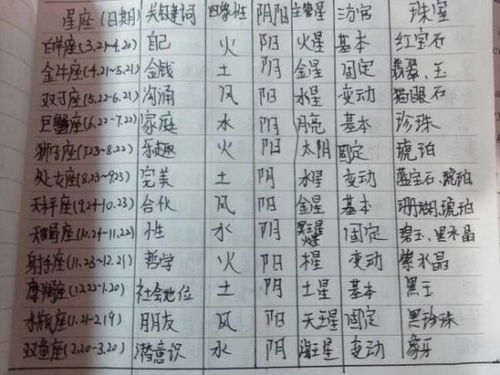 星座(日期) 关键词 四象 阴阳 主管星 三方宫 珠宝
白羊座(3.21~4.20) 自己 火 阳 火星 基本 红宝石
金牛座(4.21~5.21) 金钱 土 阴 金星 固定 翡翠、玉
双子座(5.22~6.21) 沟通 风 阳 水星 变动 猫眼石
巨蟹座(6.22~7.22) 家庭 水 阴 月亮 基本 珍珠
狮子座(7.23~8.22) 乐趣 火 阳 太阳 固定 琥珀
处女座(8.23~9.23) 完美 土 阴 水星 变动 蓝宝石、琥珀
天秤座(9.24~10.23) 合伙 风 阳 金星 基本 珊瑚、琥珀
天蝎座(10.24~11.22) 性 水 阴 固定 碧玉、黑水晶
射手座(11.23~12.21) 哲学 火 阳 木星 变动 紫水晶
摩羯座(12.22~1.20) 社会地位 土 阴 土星 基本 黑玉
水瓶座(1.21~2.19) 朋友 风 阳 天王星 固定 黑珍珠
双鱼座(2.20~3.20) 潜意识 水 阴 海王星 变动 象牙